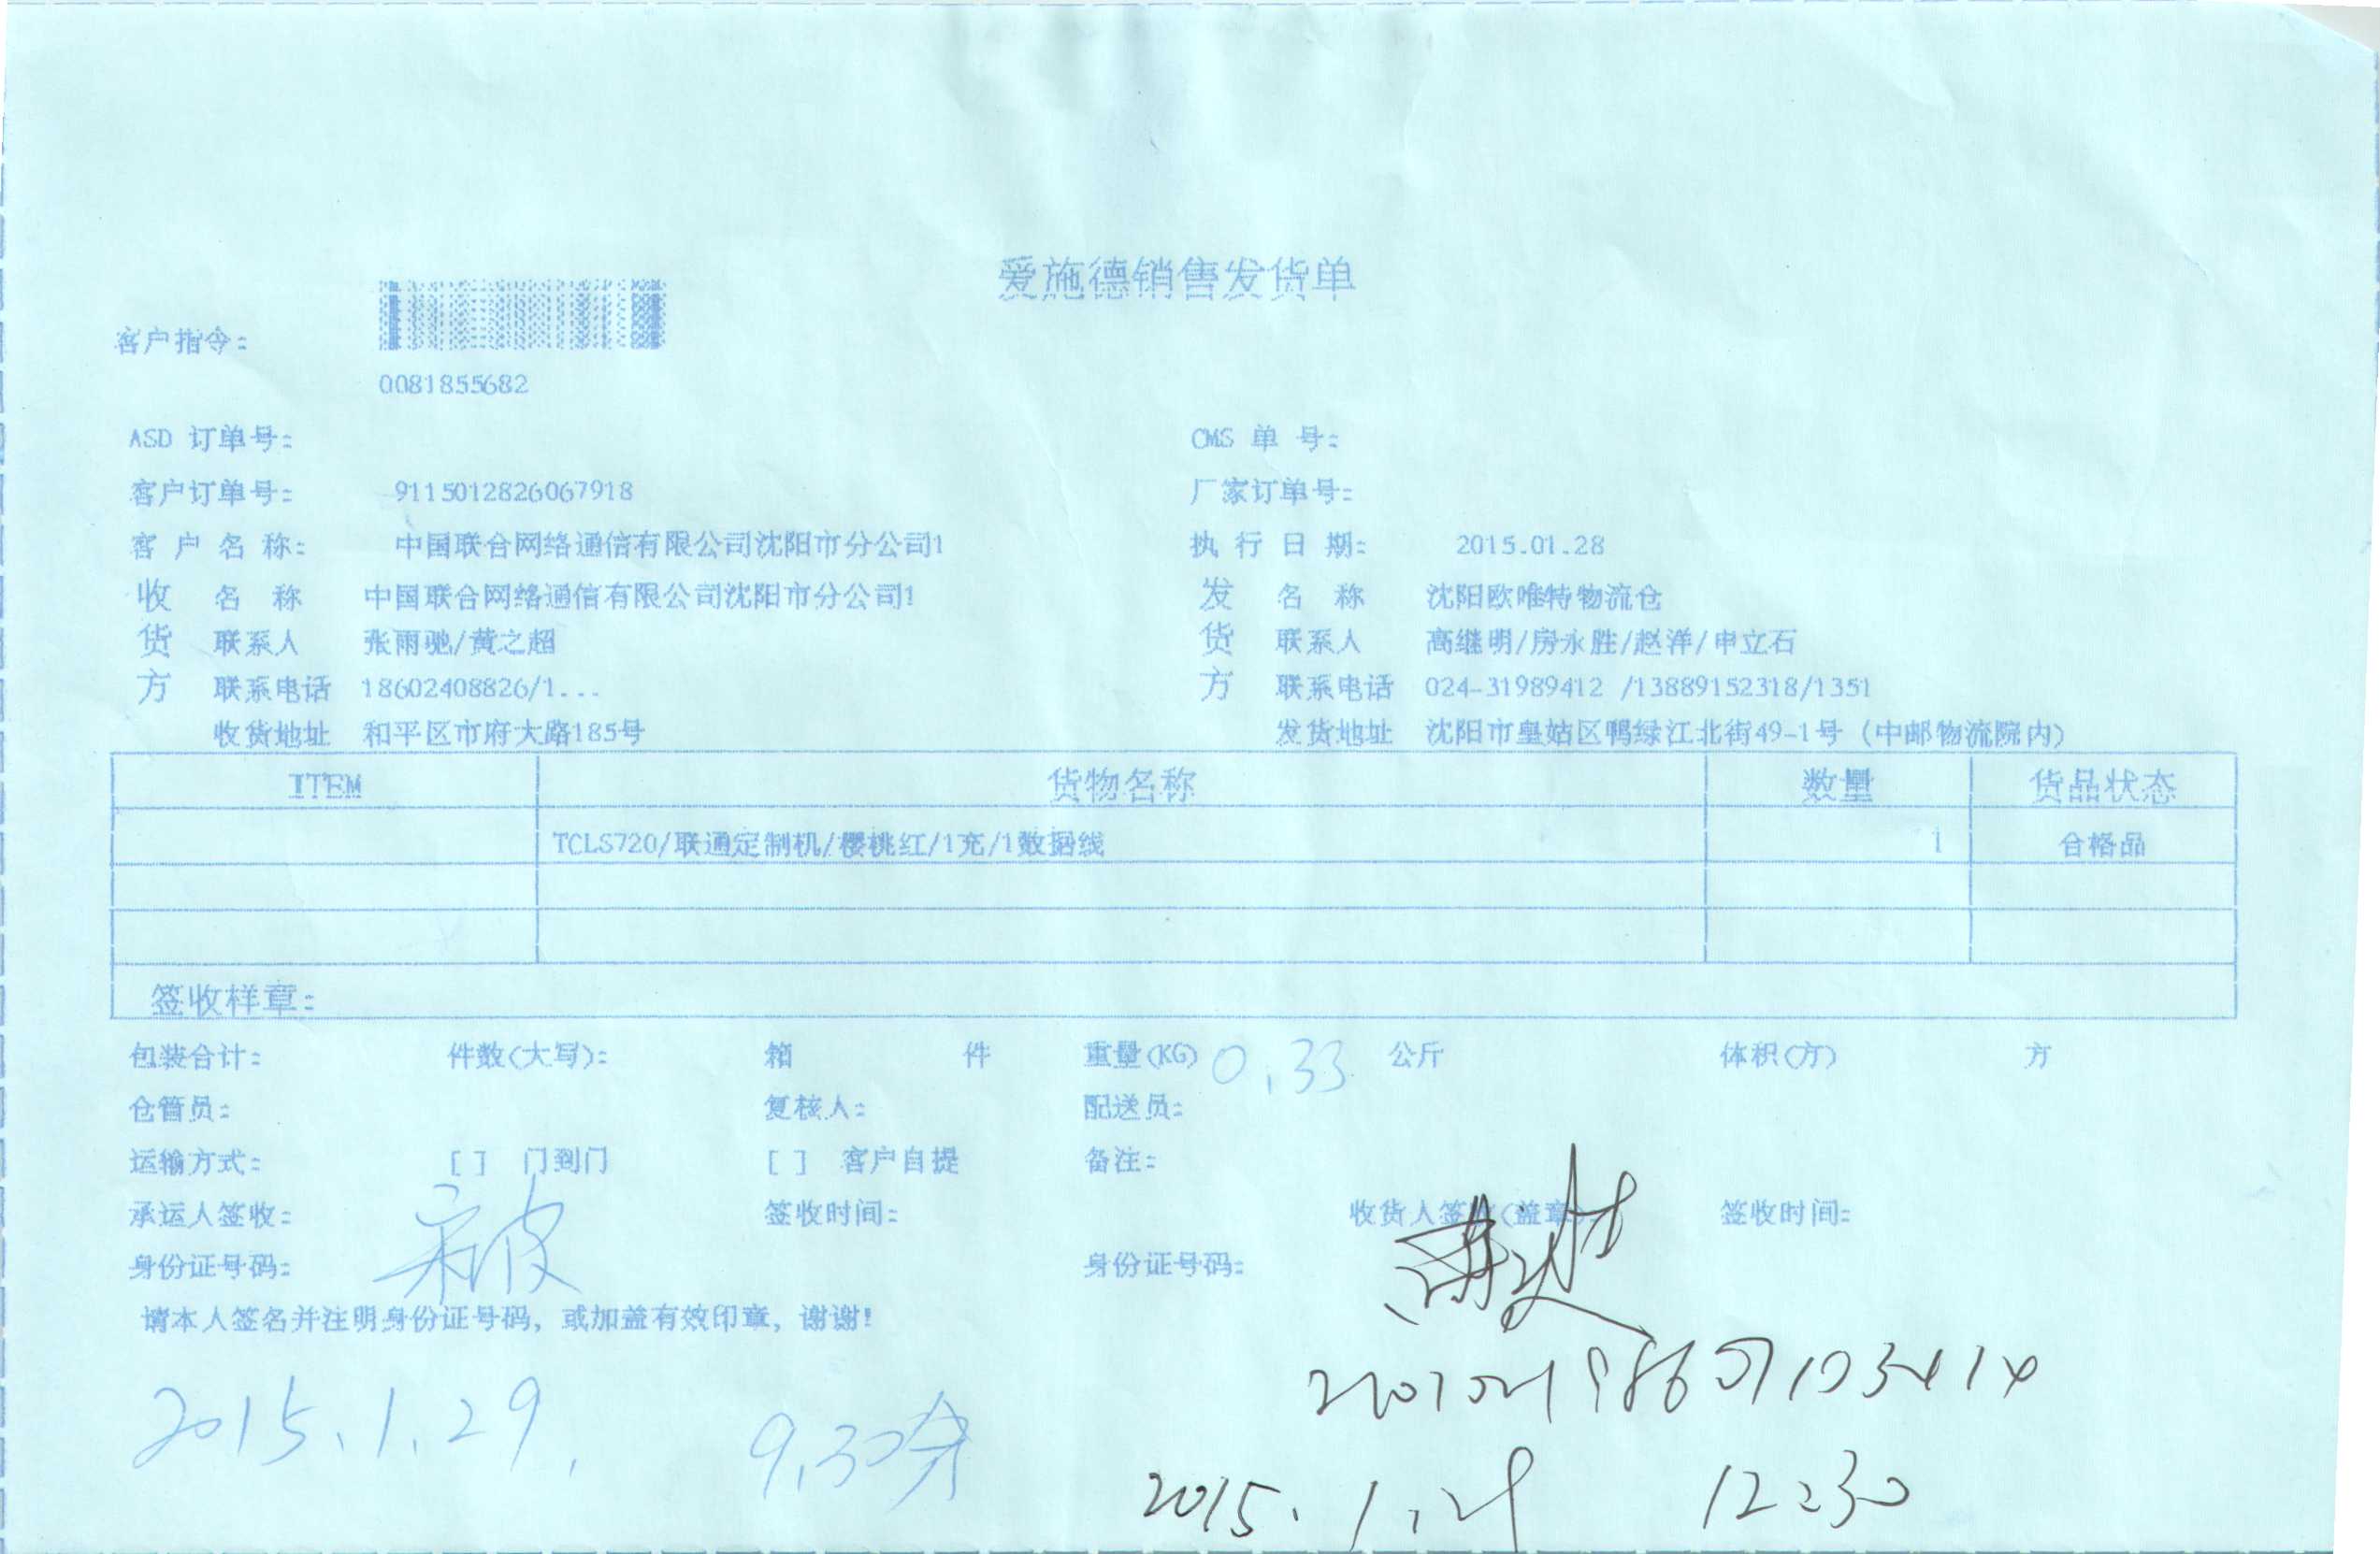 爱施德销售发货单
客户指令:
0081855682
ASD 订单号: CMS 单 号:
客户订单号: 9115012826067918 厂家订单号:
客 户 名 称: 中国联合网络通信有限公司沈阳市分公司1 执 行 日 期: 2015.01.28
收 名 称 中国联合网络通信有限公司沈阳市分公司1 发 名 称 沈阳欧唯特物流仓
货 联系人 张雨驰/黄之超 货 联系人 高继明/房永胜/赵洋/申立石
方 联系电话 18602408826/1... 方 联系电话 024-31989412 /13889152318/1351
收货地址 和平区市府大路185号 发货地址 沈阳市皇姑区鸭绿江北街49-1号 (中邮物流院内)
ITEM 货物名称 数量 货品状态
TCLS720/联通定制机/樱桃红/1充/1数据线 1 合格品
签收样章:
包装合计: 件数(大写): 箱 件 重量(KG) 0.33 公斤 体积(方) 方
仓管员: 复核人: 配送员:
运输方式: [ ] 门到门 [ ] 客户自提 备注:
承运人签收: 签收时间: 收货人签收(盖章): 签收时间:
身份证号码: 身份证号码:
请本人签名并注明身份证号码, 或加盖有效印章, 谢谢!
2015.1.29. 9.30分
2015.1.29 12:30